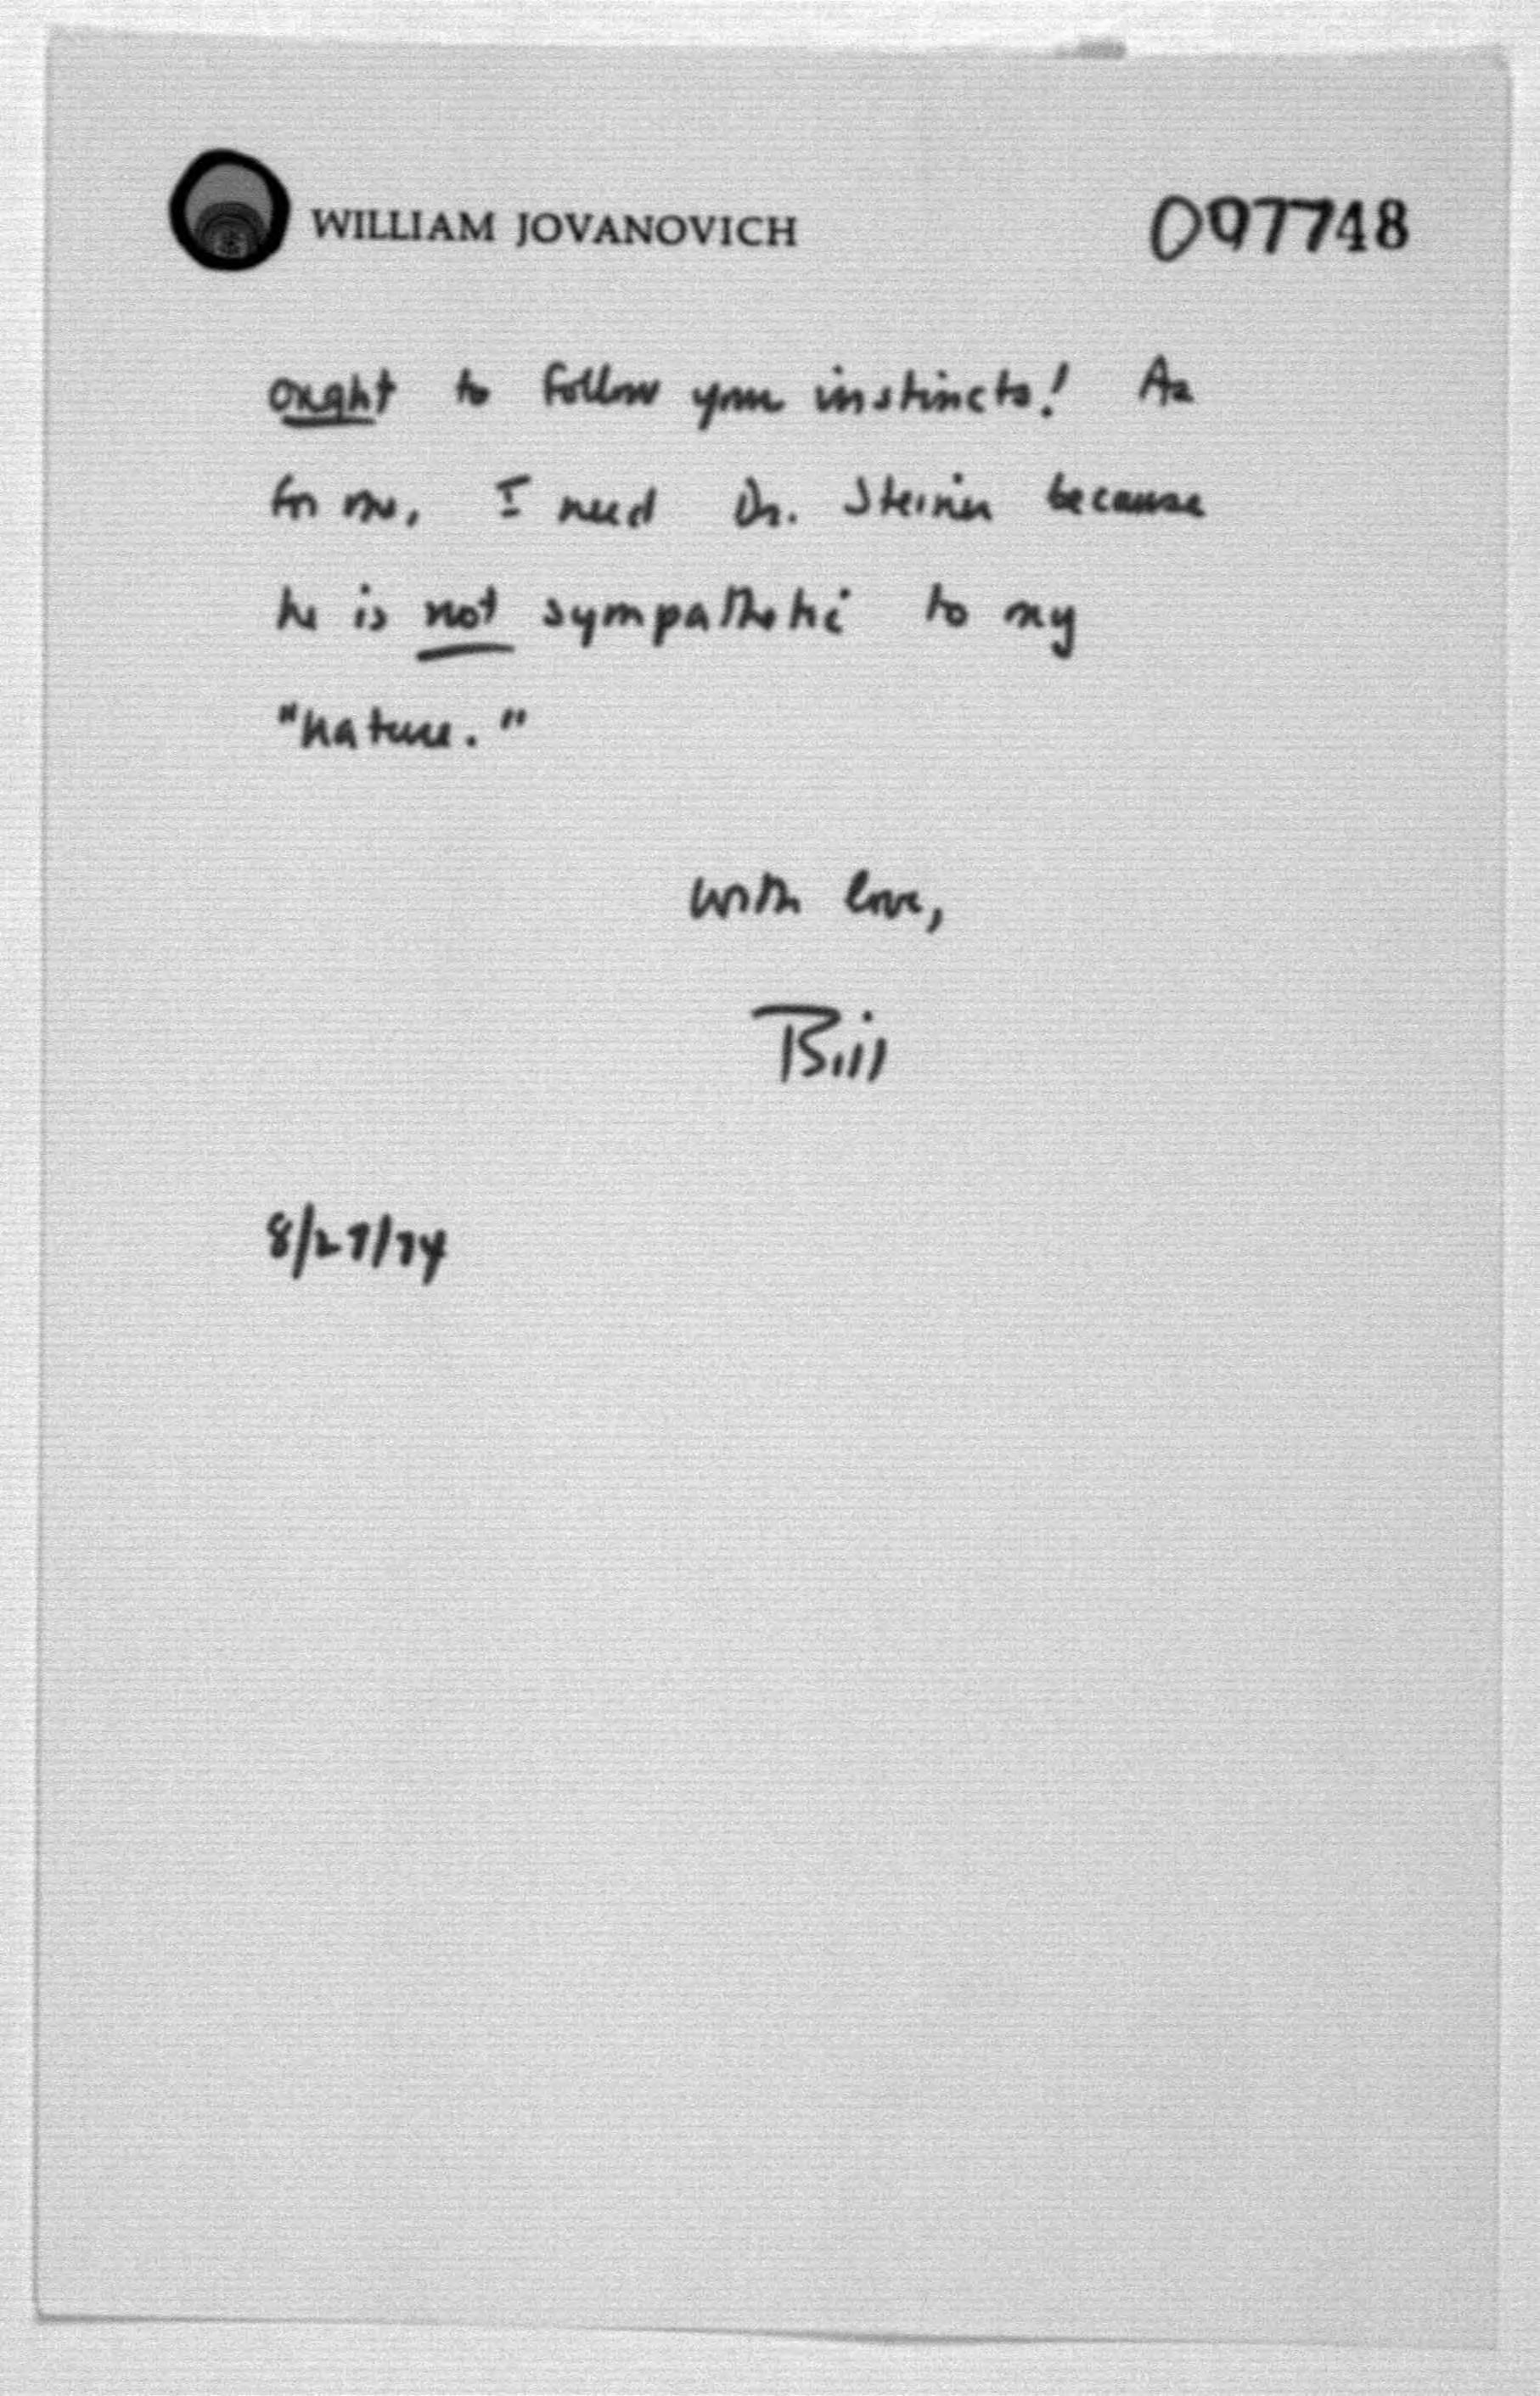 WILLIAM JOVANOVICH 097748
ought to follow your instincts! As
for me, I need Dr. Steiner because
he is not sympathetic to my
"nature."
with love,
Bill
8/27/74